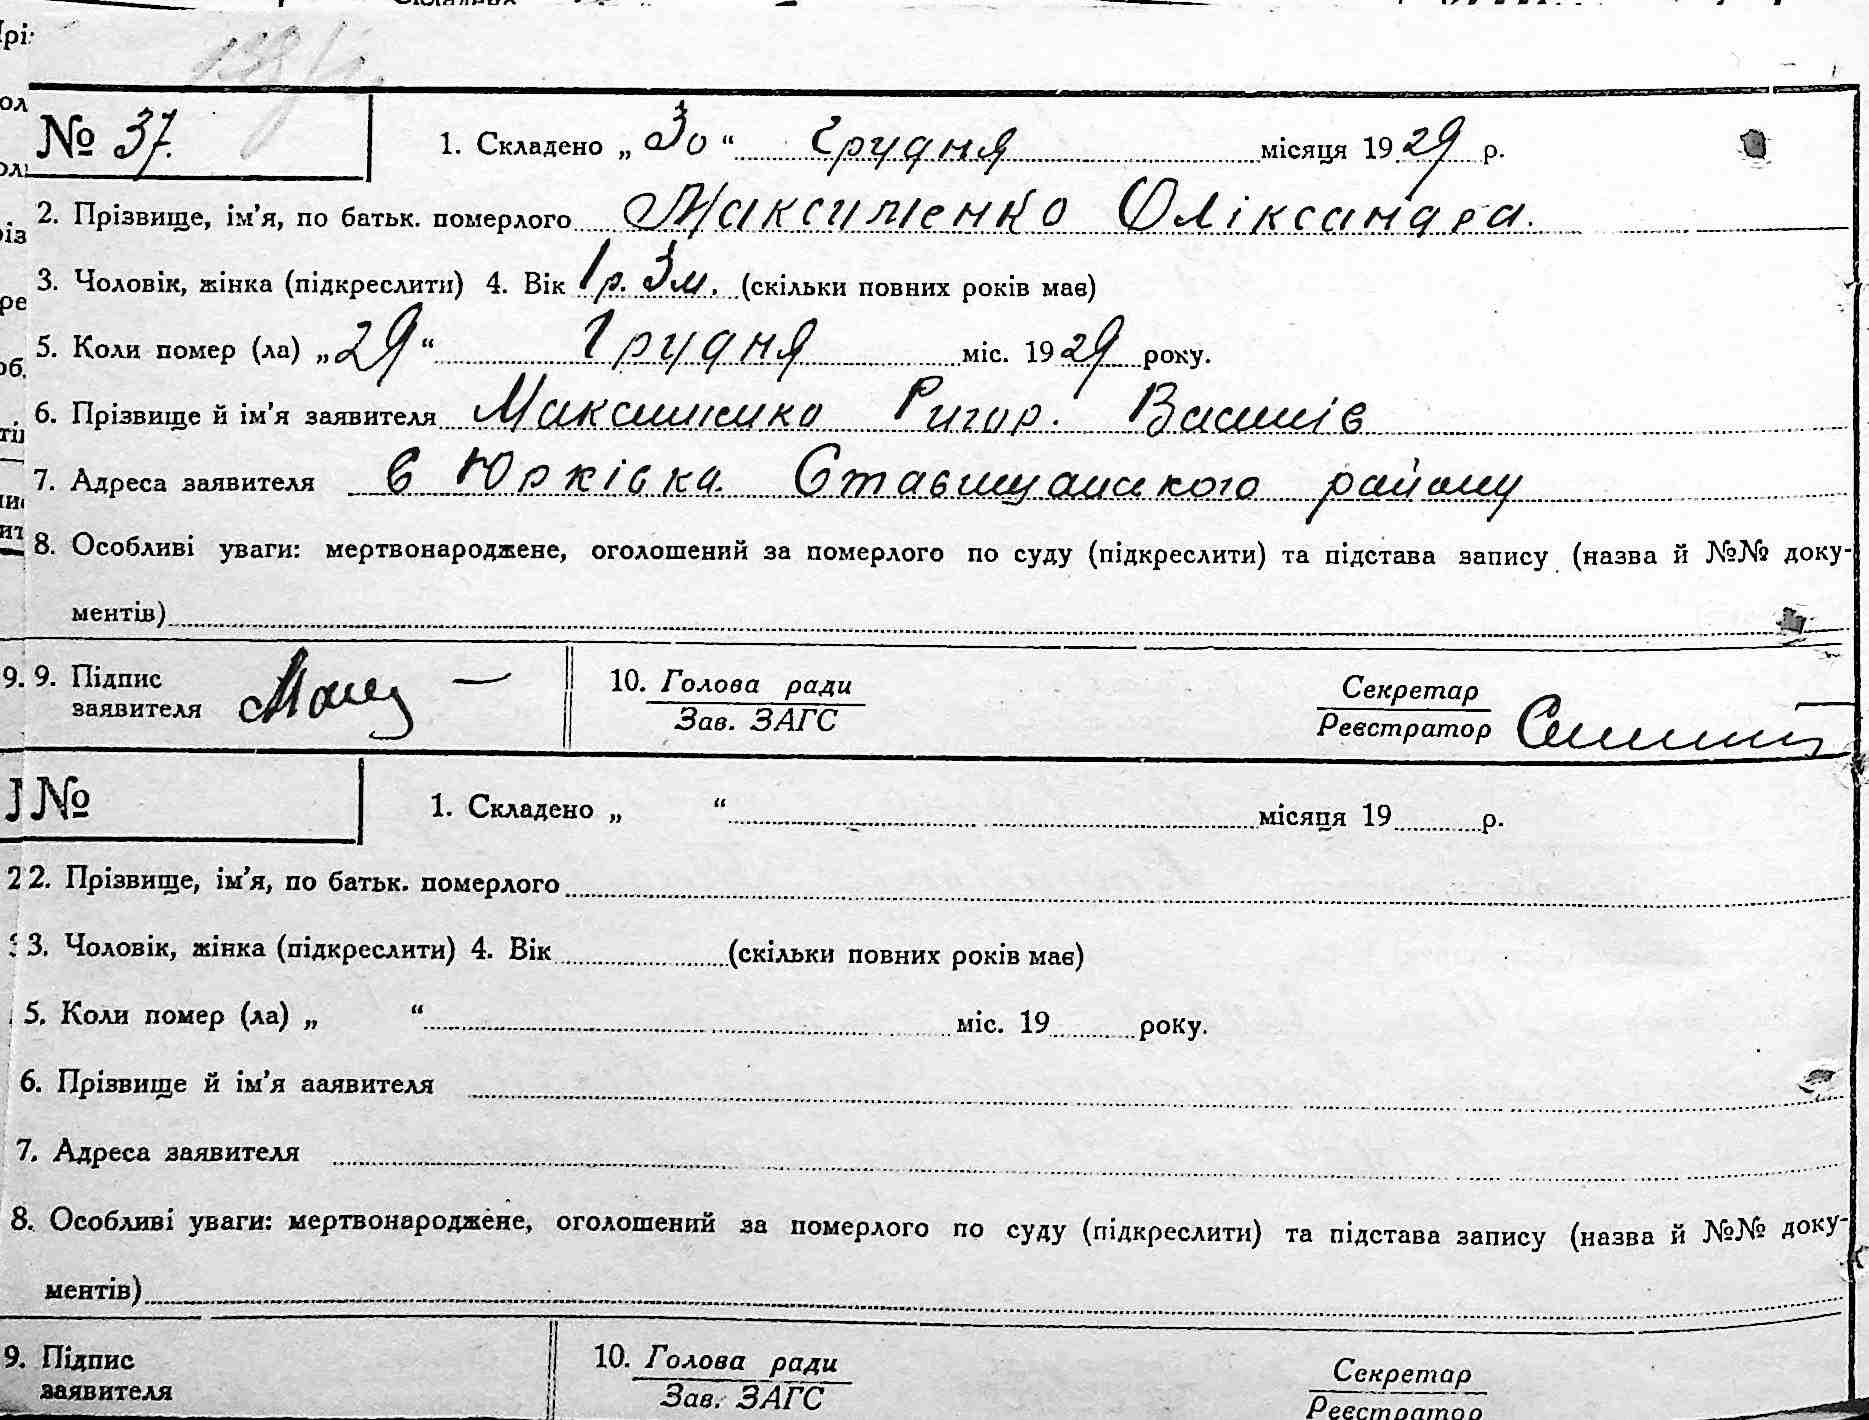 № 37.
1. Складено „ 30 “ Грудня місяця 1929 р.
2. Прізвище, ім’я, по батьк. померлого Максименко Оліксандра.
3. Чоловік, жінка (підкреслити) 4. Вік 1р. 3м. (скільки повних років має)
5. Коли помер (ла) „29“ Грудня міс. 1929 року.
6. Прізвище й ім’я заявителя Максименко Ригор. Василів
7. Адреса заявителя с Юрківка. Ставищанського району
8. Особливі уваги: мертвонароджене, оголошений за померлого по суду (підкреслити) та підстава запису (назва й №№ доку-
ментів)
9. Підпис
заявителя
10. Голова ради
Зав. ЗАГС
Секретар
Реєстратор
№
1. Складено „ “ місяця 19 р.
2. Прізвище, ім’я, по батьк. померлого
3. Чоловік, жінка (підкреслити) 4. Вік (скільки повних років має)
5. Коли помер (ла) „ “ міс. 19 року.
6. Прізвище й ім’я ааявителя
7. Адреса заявителя
8. Особливі уваги: мертвонароджене, оголошений за померлого по суду (підкреслити) та підстава запису (назва й №№ доку-
ментів)
9. Підпис
заявителя
10. Голова ради
Зав. ЗАГС
Секретар
Реєстратор